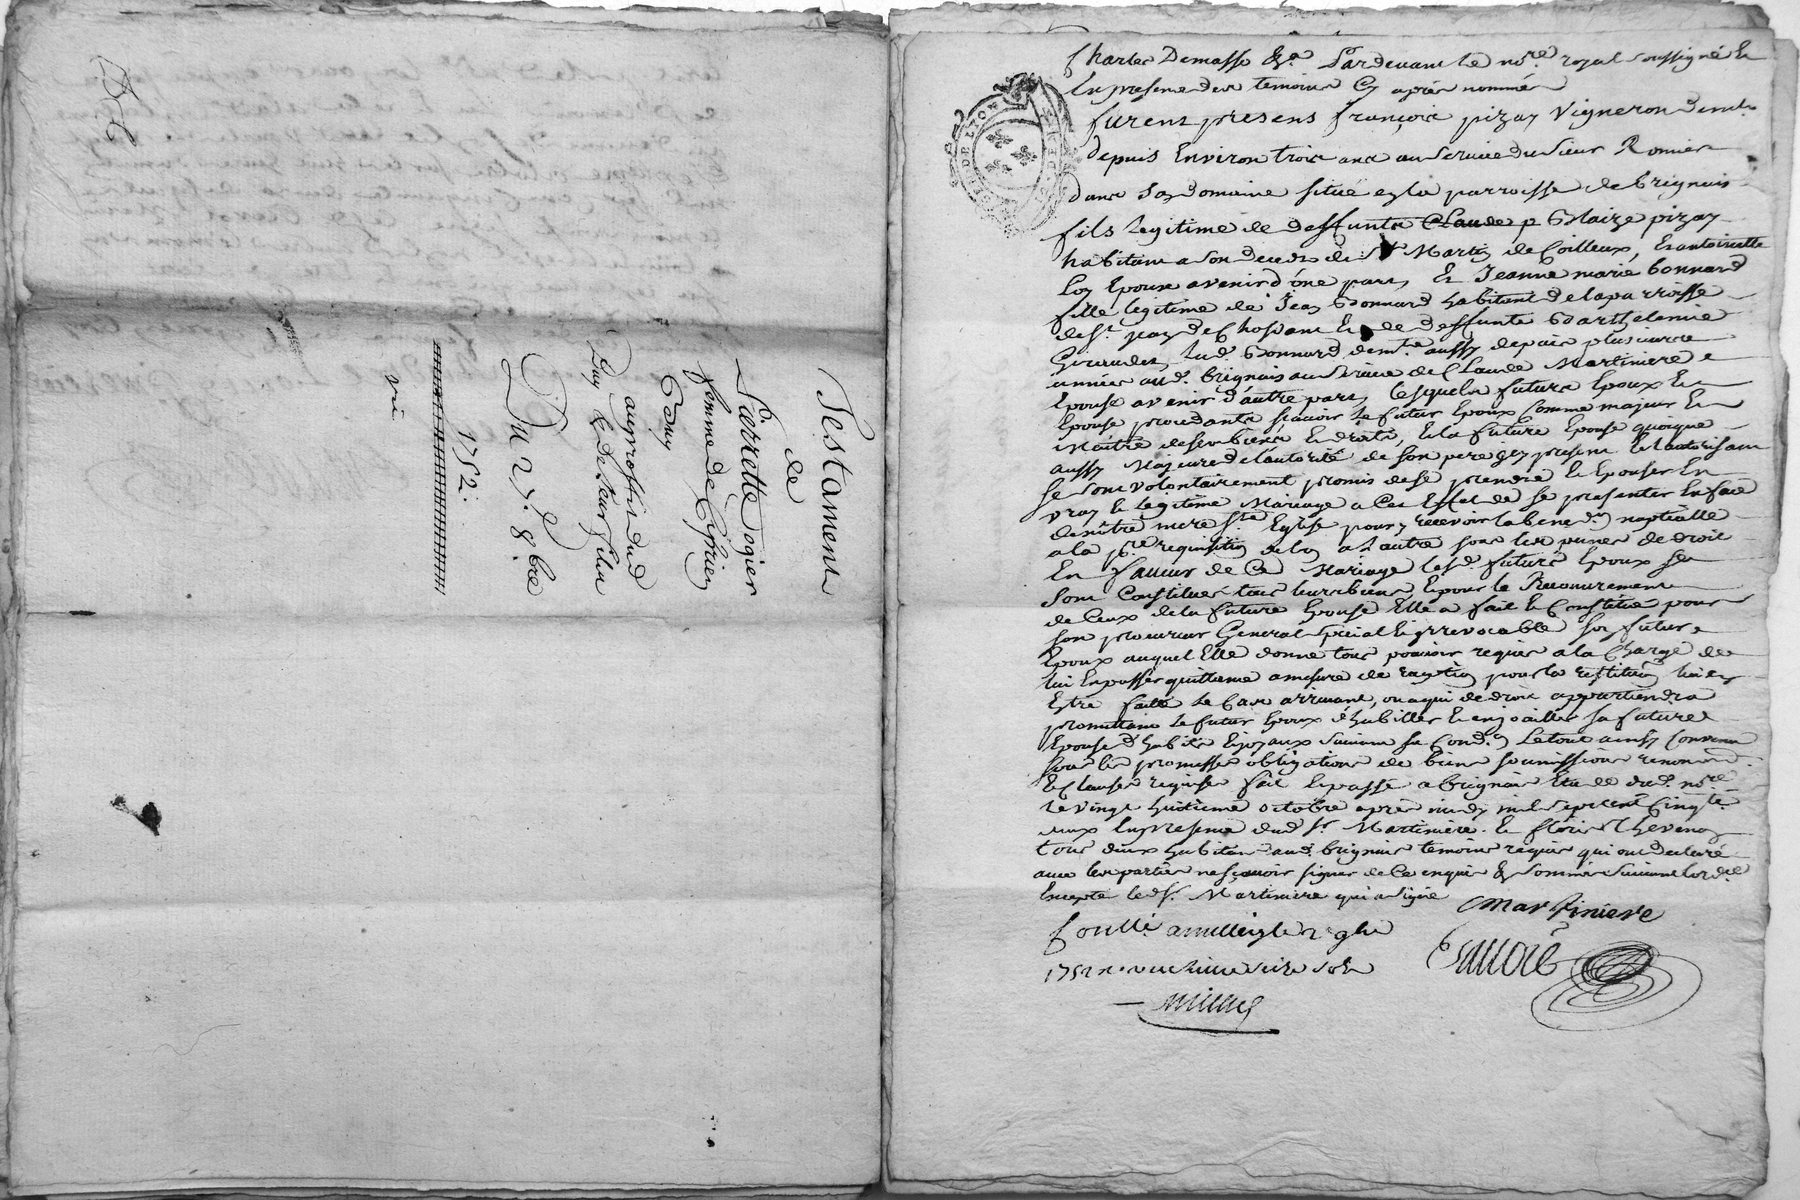 Testament
de
Pierrette ogier
femme de Cyprien
au proffit dud
Guy & de sa fille
Du 27e 8bre
1752.
Charles Demasso &a. Pardevant le nore. royal soussigné Et
En presence des temoins Cy après nommés
furent presens françois pizay Vigneron demt.
depuis Environ trois ans au service du sieur Ronner
dans son domaine situé en la parroisse de brignais
fils legitime de deffunts Claude p Blaize pizay
habitant a son deceds de St Martin de Coilleux, Et antoinette
Loy Epoux avenir d'une part, Et Jeanne marie bonnard
fille legitime de Jean Bonnard habitant de la parroisse
de st. jean de Chossant Et de deffunte Barthelemie
lad. Bonnard demte. aussy depuis plusieurs
années aud. brignais au service de Claude Martiniere
Epouse avenir d'autre part, Lesquels futurs Epoux Et
Epouse procedants sçavoir le futur Epoux Comme majeur Et
Maitre de ses biens Et droits, Et la future Epouse quoique
aussy Majeure de l'autorité de son pere icy present Et l'autorisant
se sont volontairement promis de se prendre Et Epouser En
vray Et legitime Mariage a Cet Effet de se presenter En face
de nôtre mere Ste. Eglise pour y recevoir la benedon. nuptialle
a la pre. requisition de l'un a l'autre sous les peines de droit
En faveur de Ce Mariage lesd. futurs Epoux se
sont Constitués tous leurs biens Et pour le Recouvrement
de Ceux de la future Epouse Elle a fait Et Constitué pour
son procureur General special Et irrevocable son futur
Epoux auquel Elle donne tous pouvoir requis a la Charge de
lui En passer quittance a mesure de reception pour la restitution luy en
Estre faite le Cas arrivant, ou a qui de droit appartiendra
promettant le futur Epoux d'habiller Et enjoailler sa future
Epouse d'habits Et joyaux suivant sa Condon. Le tout ainsy Convenu
sous les promesses obligations de biens soumissions renonons.
Et Clauses requises fait Et passé a brignais Etude dud. nore.
le vingt huitieme octobre après midy mil sept cent Cinqte.
deux En presence dud sr. Martiniere Et fleurie Thevenon
tous deux habitans aud. brignais temoins requis qui ont declaré
avec les parties ne sçavoir signer de Ce enquis Et sommés suivant l'ordce.
Excepté led sr. Martiniere qui a signé
Martiniere
Conllé a millery le 9bre
1752 reçu Livre seize sols